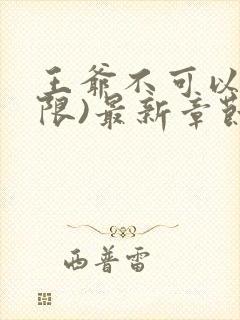 王爷不可以
限)最新章节
西普雷